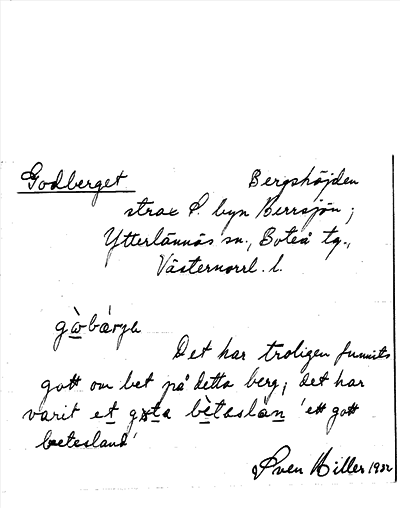 Godberget Bergshöjden
strax S. byn Herrsjön;
Ytterlännäs sn., Boteå tg.,
Västernorrl. l.
Det har troligen funnits
gott om bet på detta berg; det har
varit et bètaslàn 'ett gott
betesland'
Sven Hiller 1932